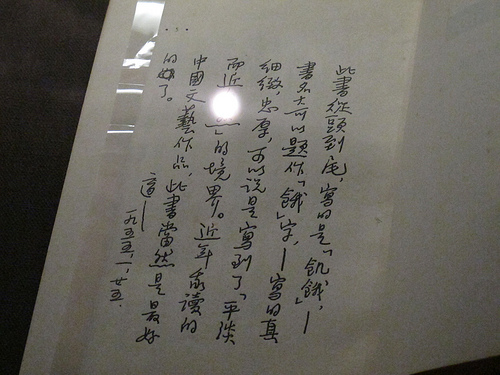 此書從頭到尾，寫的是「飢餓」—
書名大可以題作「餓」字，—寫的真
細緻，忠厚，可以說是寫到了「平淡
而近」的境界。近年來讀的
中國文藝作品，此書當然是最好
的了。
適一
一九五五，一，廿五．